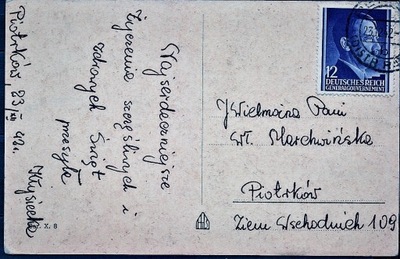 Najserdeczniejsze
życzenia szczęśliwych i
zdrowych Świąt
przesyła
Piotrków, 23/XII 42r.
X. 8
12
DEUTSCHES REICH
GENERALGOUVERNEMENT
JWielmożna Pani
Wł. Marchwińska
Piotrków
Ziem Wschodnich 109